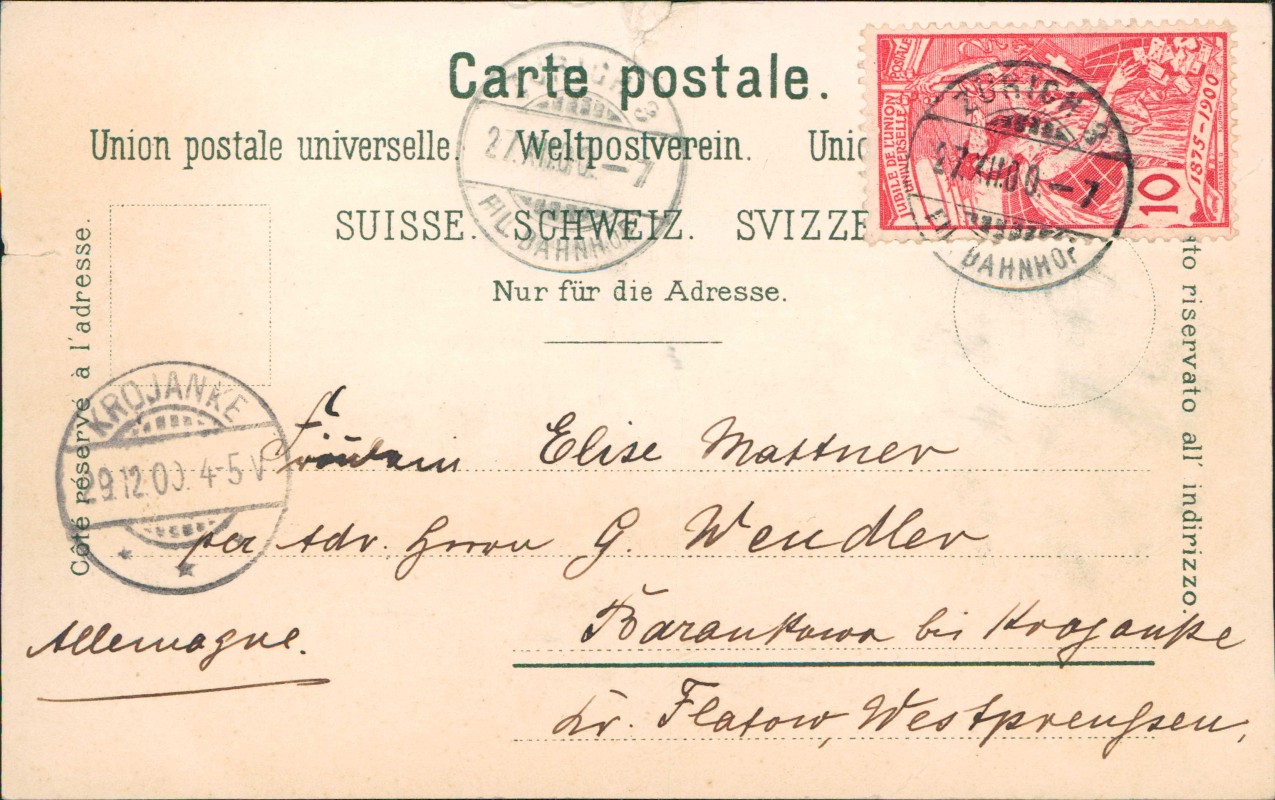 Carte postale.
Union postale universelle. Weltpostverein. Unio
SUISSE. SCHWEIZ. SVIZZE
Nur für die Adresse.
Côté réservé à l'adresse.
ato riservato all' indirizzo.
JUBILÉ DE L'UNION
POSTALE
UNIVERSELLE
10
1875-1900
ZÜRICH 3
27.XII.00.-7
FIL. BAHNHOF
ZÜRICH 3
27.XII.00.-7
FIL. BAHNHOF
KROJANKE
29.12.00. 4-5 V
Fräulein Elise Mattner
per Adr. Herrn G. Wendler
bei Krojanke
Kr. Flatow, Westpreussen,
Allemagne.